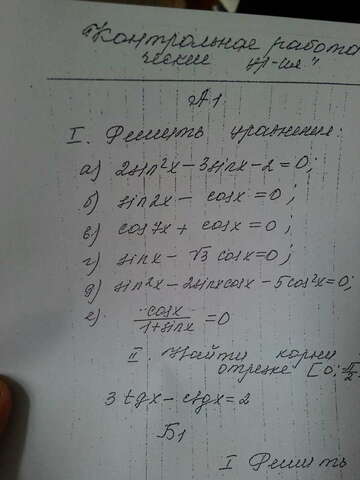 "Контрольное работа
ческие ур-ия"
А1
I. Решить уравнения:
а) 2sin²x - 3sinx - 2 = 0;
б) sin2x - cosx = 0;
в) cos7x + cosx = 0;
г) sinx - √3 cosx = 0;
д) sin²x - 2sinxcosx - 5cos²x = 0;
е) cosx / 1+sinx = 0
II. Найти корни
отрезке [0; π/2
3tgx - ctgx = 2
Б1
I Решить